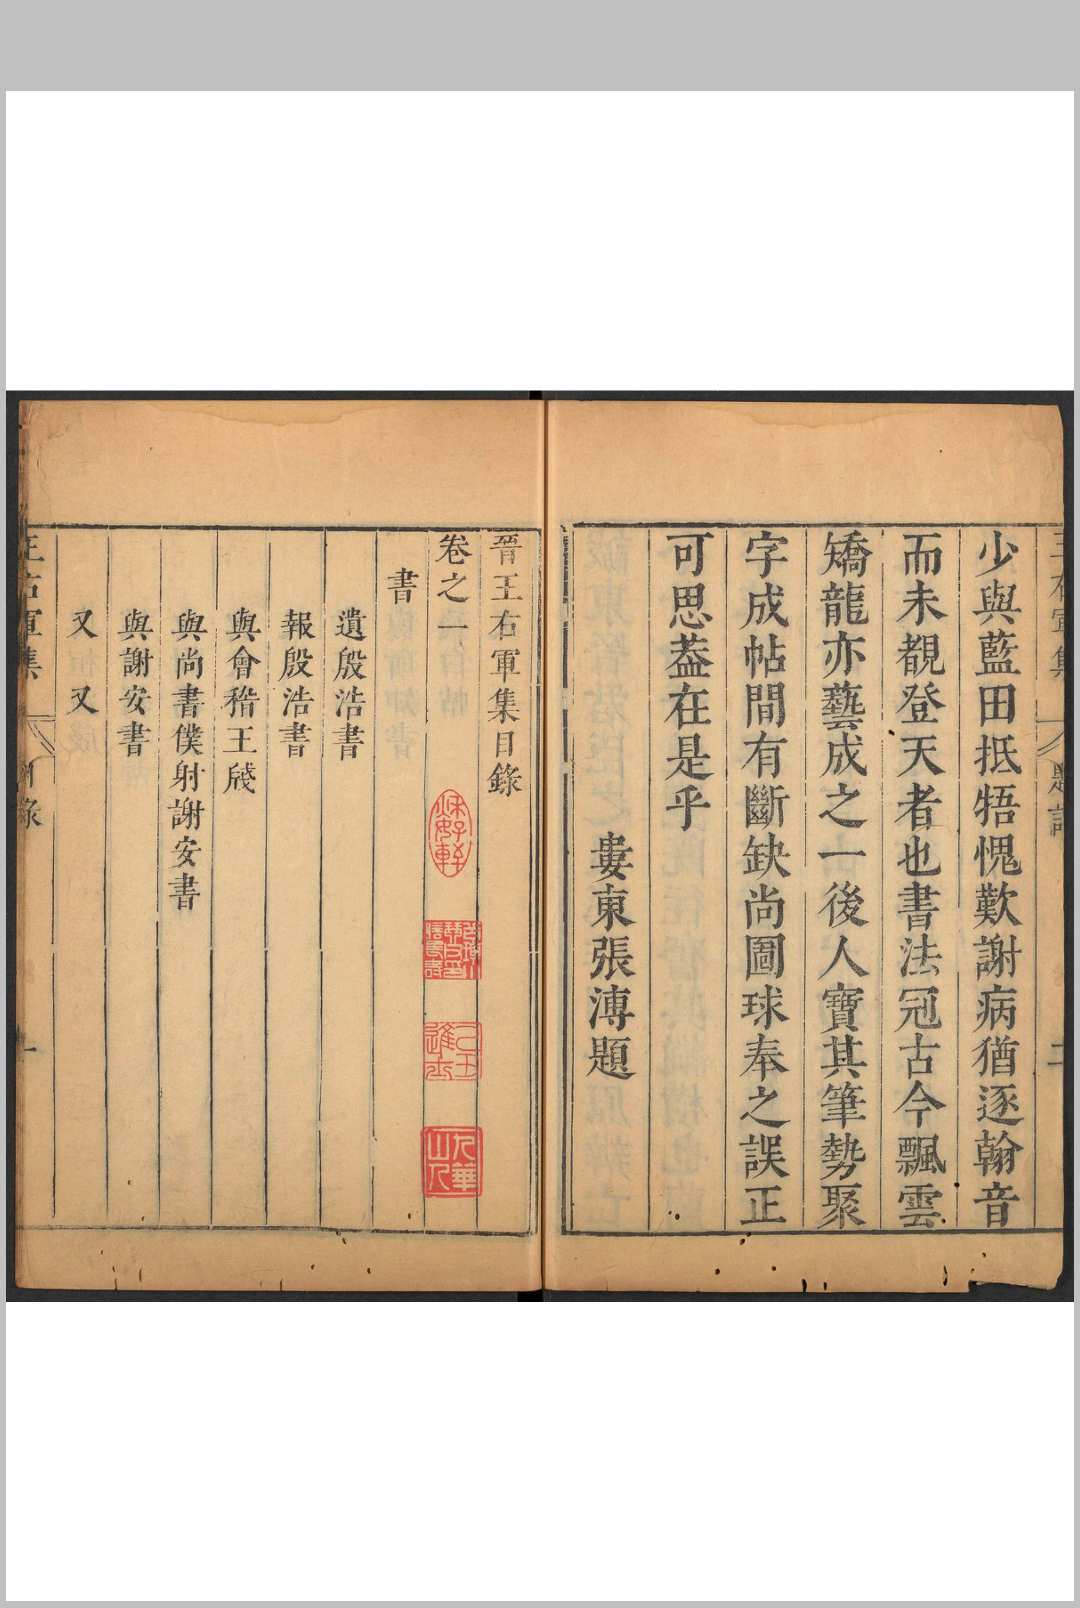 少與藍田抵牾愧歎謝病猶逐翰音
而未覩登天者也書法冠古今飄雲
矯龍亦藝成之一後人寶其筆勢聚
字成帖間有斷缺尚圖球奉之誤正
可思葢在是乎
婁東張溥題
晉王右軍集目錄
卷之一
書
遺殷浩書
報殷浩書
與會稽王牋
與尚書僕射謝安書
與謝安書
又 又
王右軍集
目錄
一
九華山人